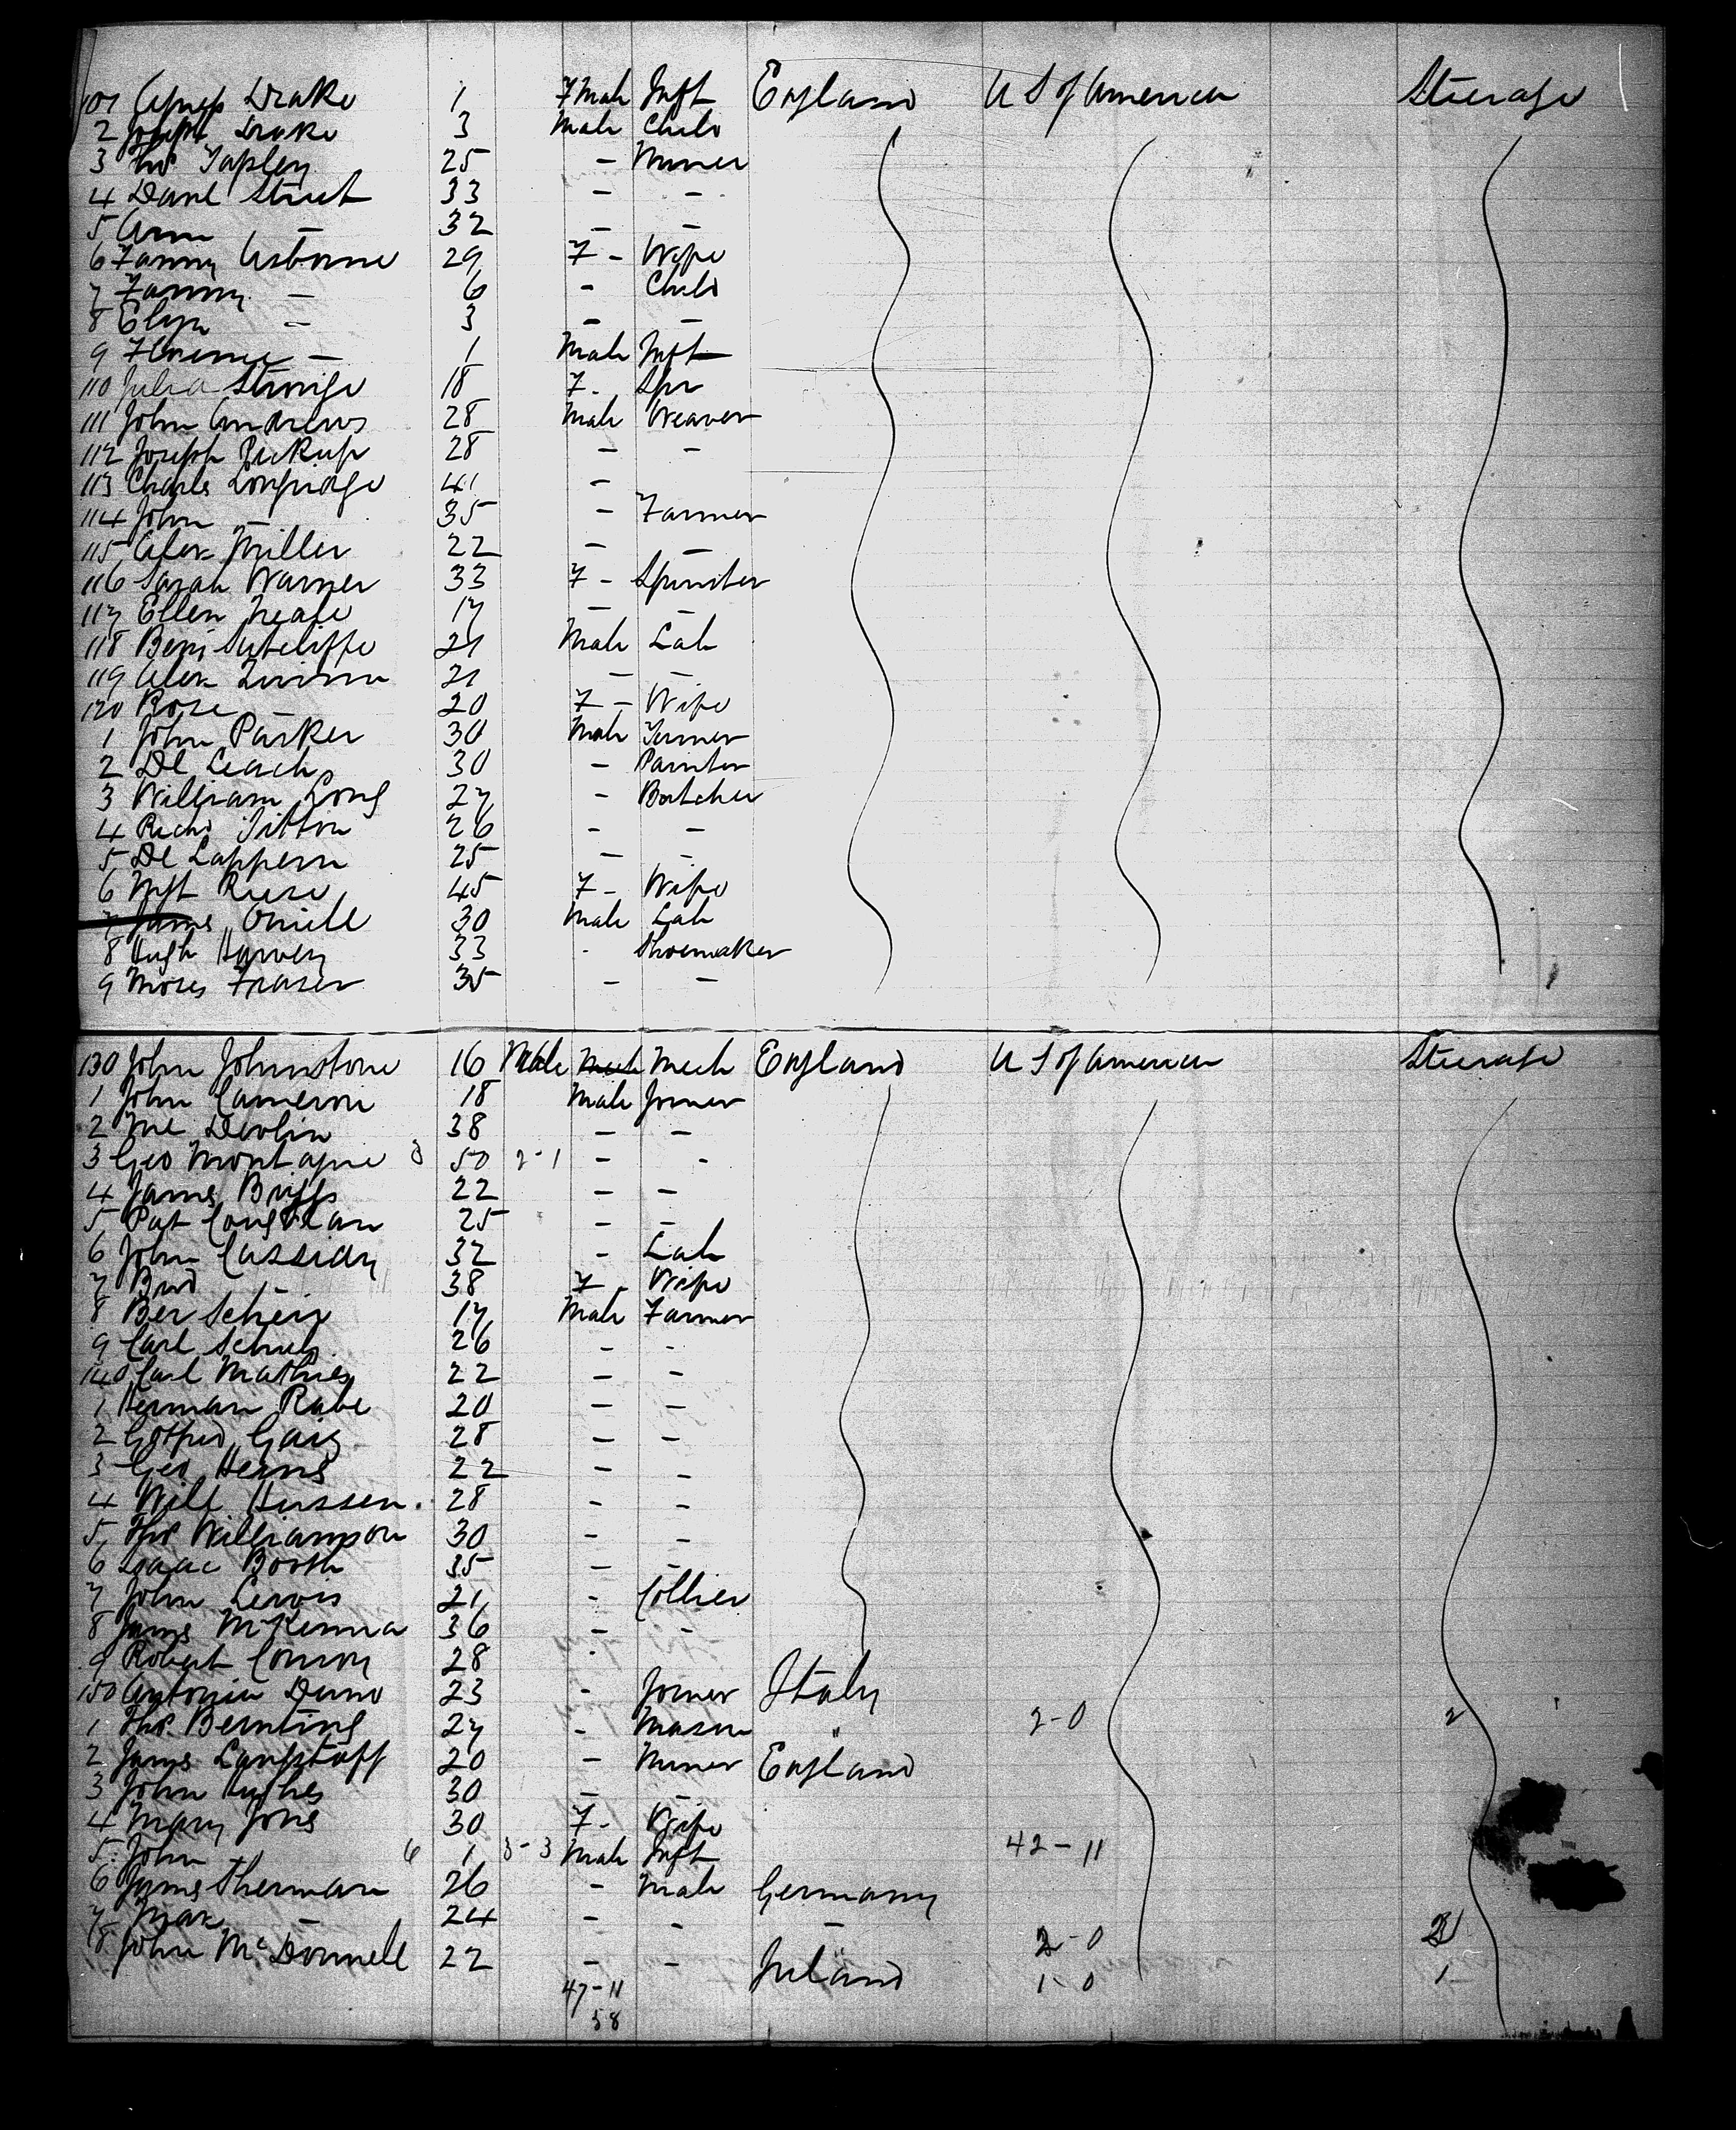 101 Agness Drake 1 F Male Inft England U S of America Steerage
2 Joseph Drake 3 Male Child
3 Thos Tapley 25 - Miner
4 Danl Street 33 - -
5 Ann - 32 - -
6 Fanny Osborne 29 F - Wife
7 Fanny - 6 - Child
8 Eliza - 3 - -
9 Florence - 1 Male Inft
110 Julia Strange 18 F - Spr
111 John Andrews 28 Male Weaver
112 Joseph Pickup 28 - -
113 Charles Longridge 41 -
114 John - 35 - Farmer
115 Alex Miller 22 - -
116 Sarah Warner 33 F - Spinster
117 Ellen Neale 17 - -
118 Benj Sutcliffe 21 Male Lab
119 Alex 21 - -
120 Rose - 20 F - Wife
1 John Parker 30 Male
2 Dl Leach 30 - Painter
3 William Long 27 - Butcher
4 Richd 26 - -
5 Dl 25 - -
6 Mgt Reese 45 F - Wife
7 James Oniell 30 Male Lab
8 Hugh Harvey 33 - Shoemaker
9 Moses Fraser 35 - -
130 John Johnstone 16 Male Mech Mech England U S of America Steerage
1 John Cameron 18 Male Joiner
2 Devlin 38 - -
3 Geo Montague 3 50 2-1 - -
4 James Briggs 22 - -
5 Pat Coughlan 25 - -
6 John Cassidy 32 - Lab
7 Brid - 38 F - Wife
8 Ber Schein 17 Male Farmer
9 Carl Schulz 26 - -
140 Carl Mathies 22 - -
1 Herman Rabe 20 - -
2 Gotfried 28 - -
3 Geo Herns 22 - -
4 Will Hussen 28 - -
5 Thos Williamson 30 - -
6 Isaac Booth 35 - -
7 John Lewis 21 - Collier
8 James McKenna 36 - -
9 Robert Conroy 28 -
150 Antonia 23 - Joiner Italy
1 Thos 27 - Mason " 2-0 2
2 James Langstaff 20 - Miner England
3 John Hughes 30 - -
4 Mary Jones 30 F - Wife
5 John - 6 1 3-3 Male Inft 42-11
6 James Sherman 26 - Male Germany
7 Max - 24 - - - 2-0 2
8 John McDonnell 22 - - Ireland 1-0 1
47-11
58